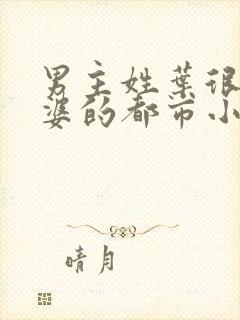 男主姓葉很
婆的都市小
晴月